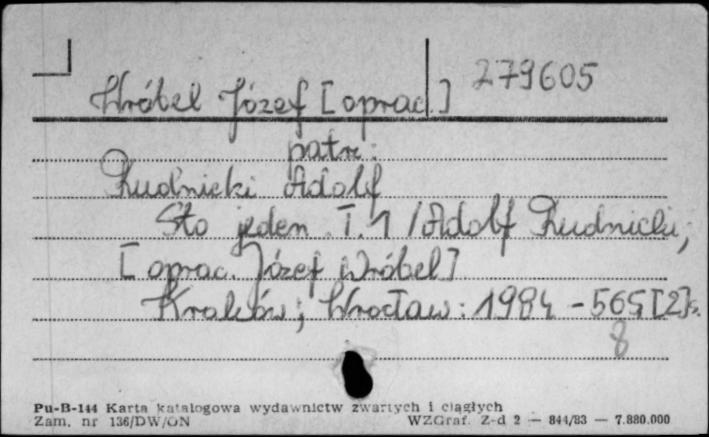 279605
Wróbel Józef [oprac.]
patrz:
Rudnicki Adolf
Sto jeden T.1 / Adolf Rudnicki;
[oprac. Józef Wróbel]
Kraków; Wrocław: 1984 - 565[2]s.
8
Pu-B-144 Karta katalogowa wydawnictw zwartych i ciągłych
Zam. nr 136/DW/ON WZGraf. Z-d 2 — 844/83 — 7.880.000